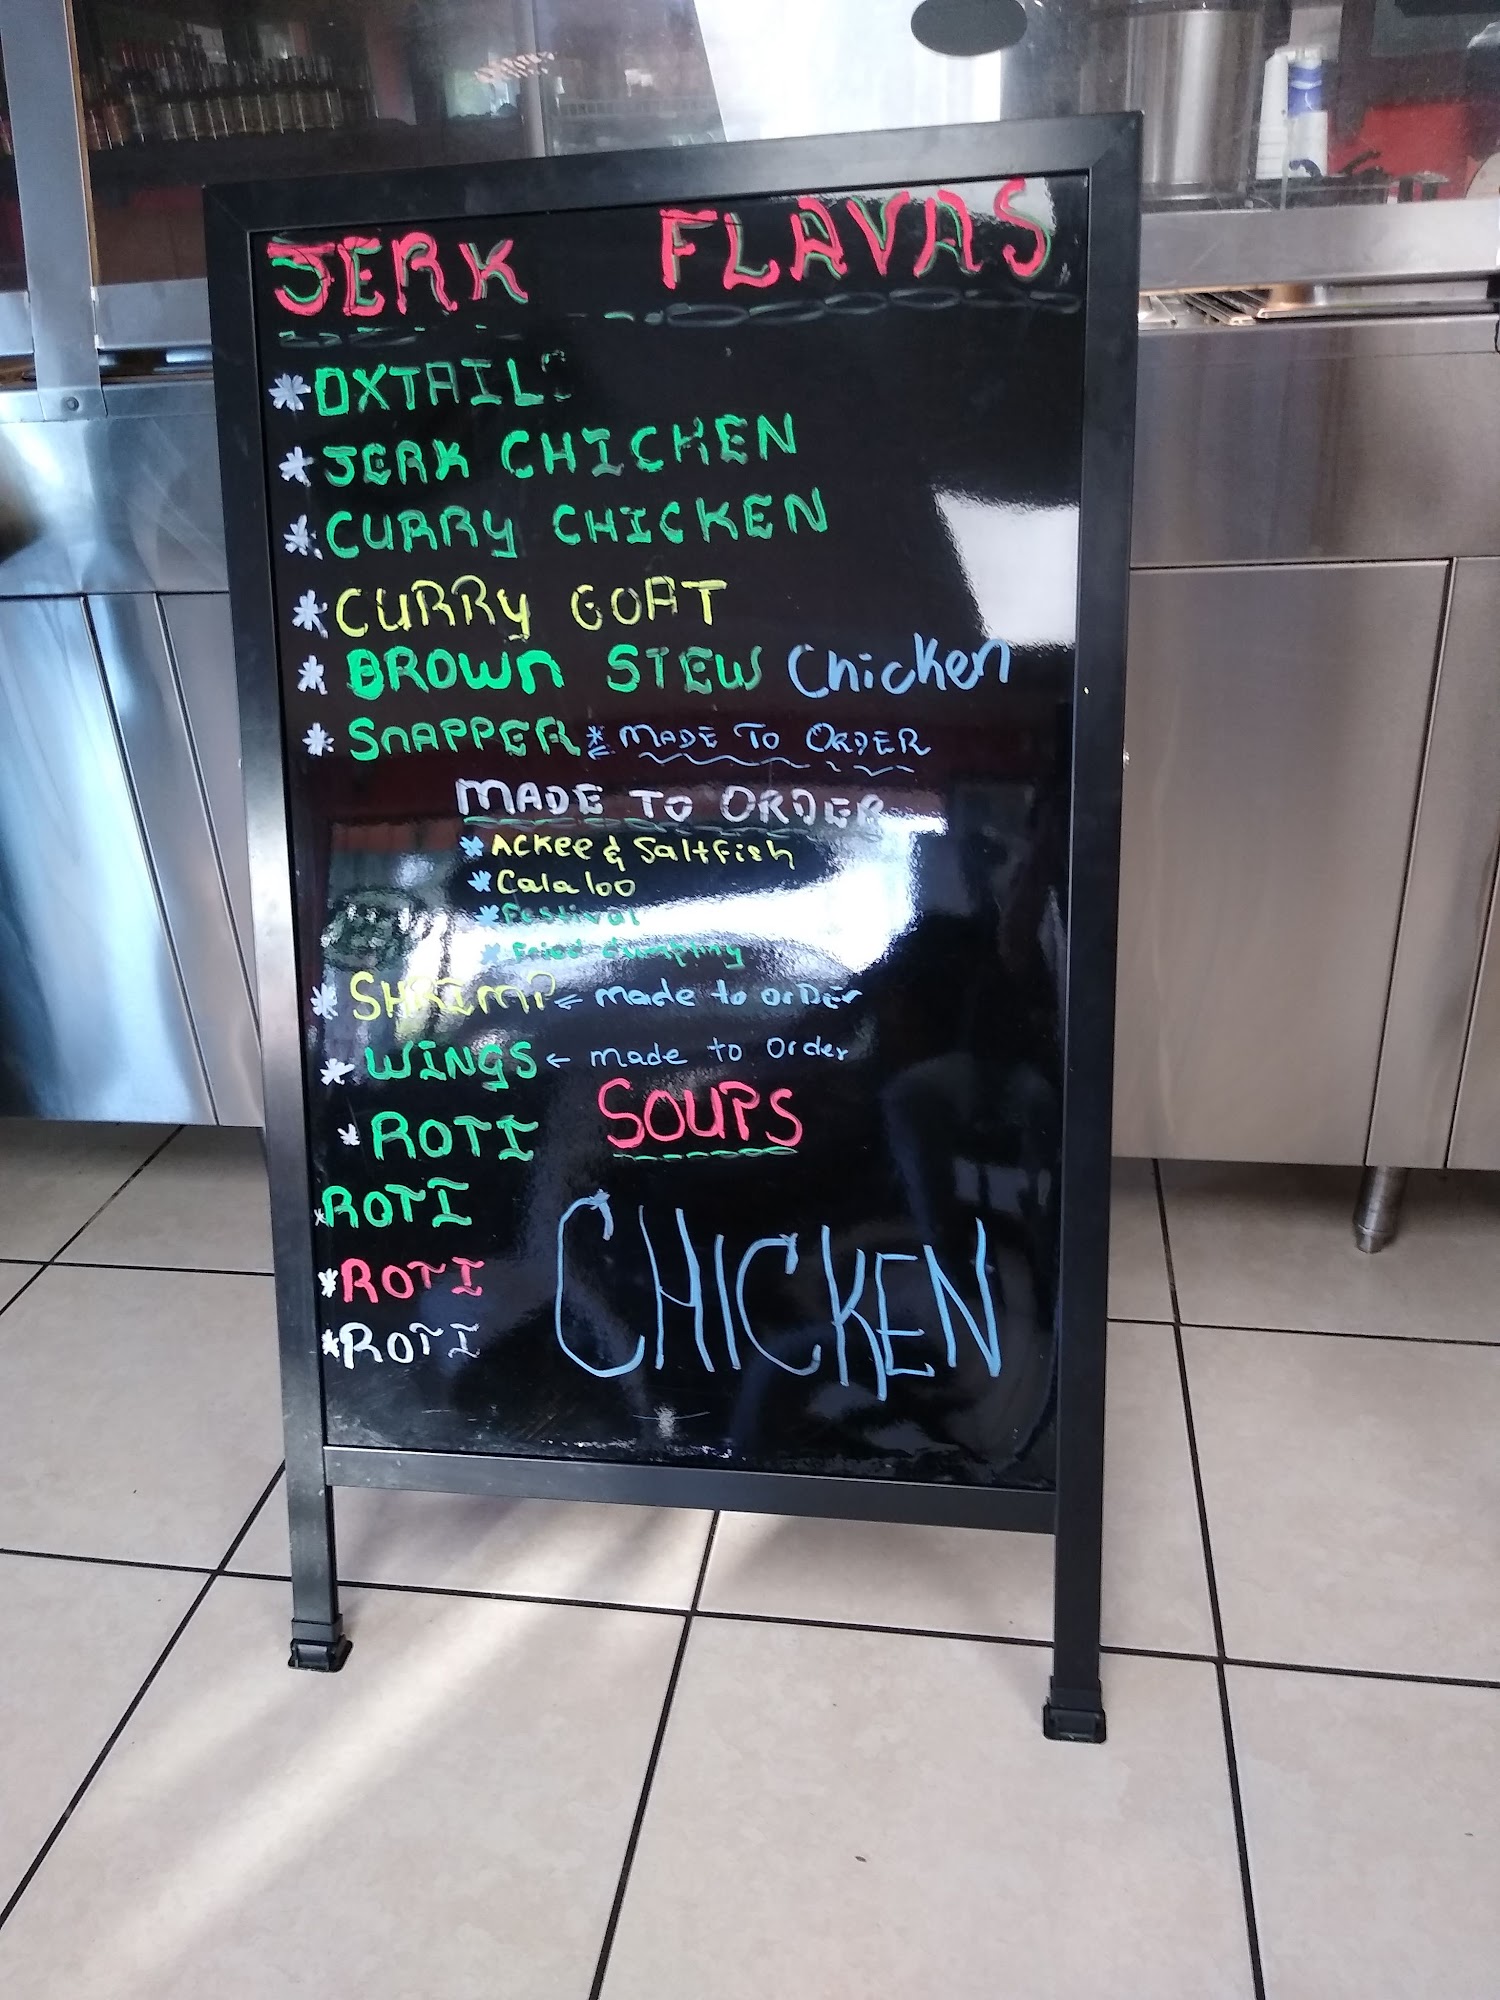 JERK FLAVAS
*OXTAILS
*JERK CHICKEN
*CURRY CHICKEN
*CURRY GOAT
*BROWN STEW Chicken
*SNAPPER * MADE TO ORDER
MADE TO ORDER
*Ackee & Saltfish
*Calaloo
*Festival
*Fried dumpling
*SHRIMP ← made to orDer
*WINGS ← made to Order
*ROTI SOUPS
*ROTI
*ROTI CHICKEN
*ROTI